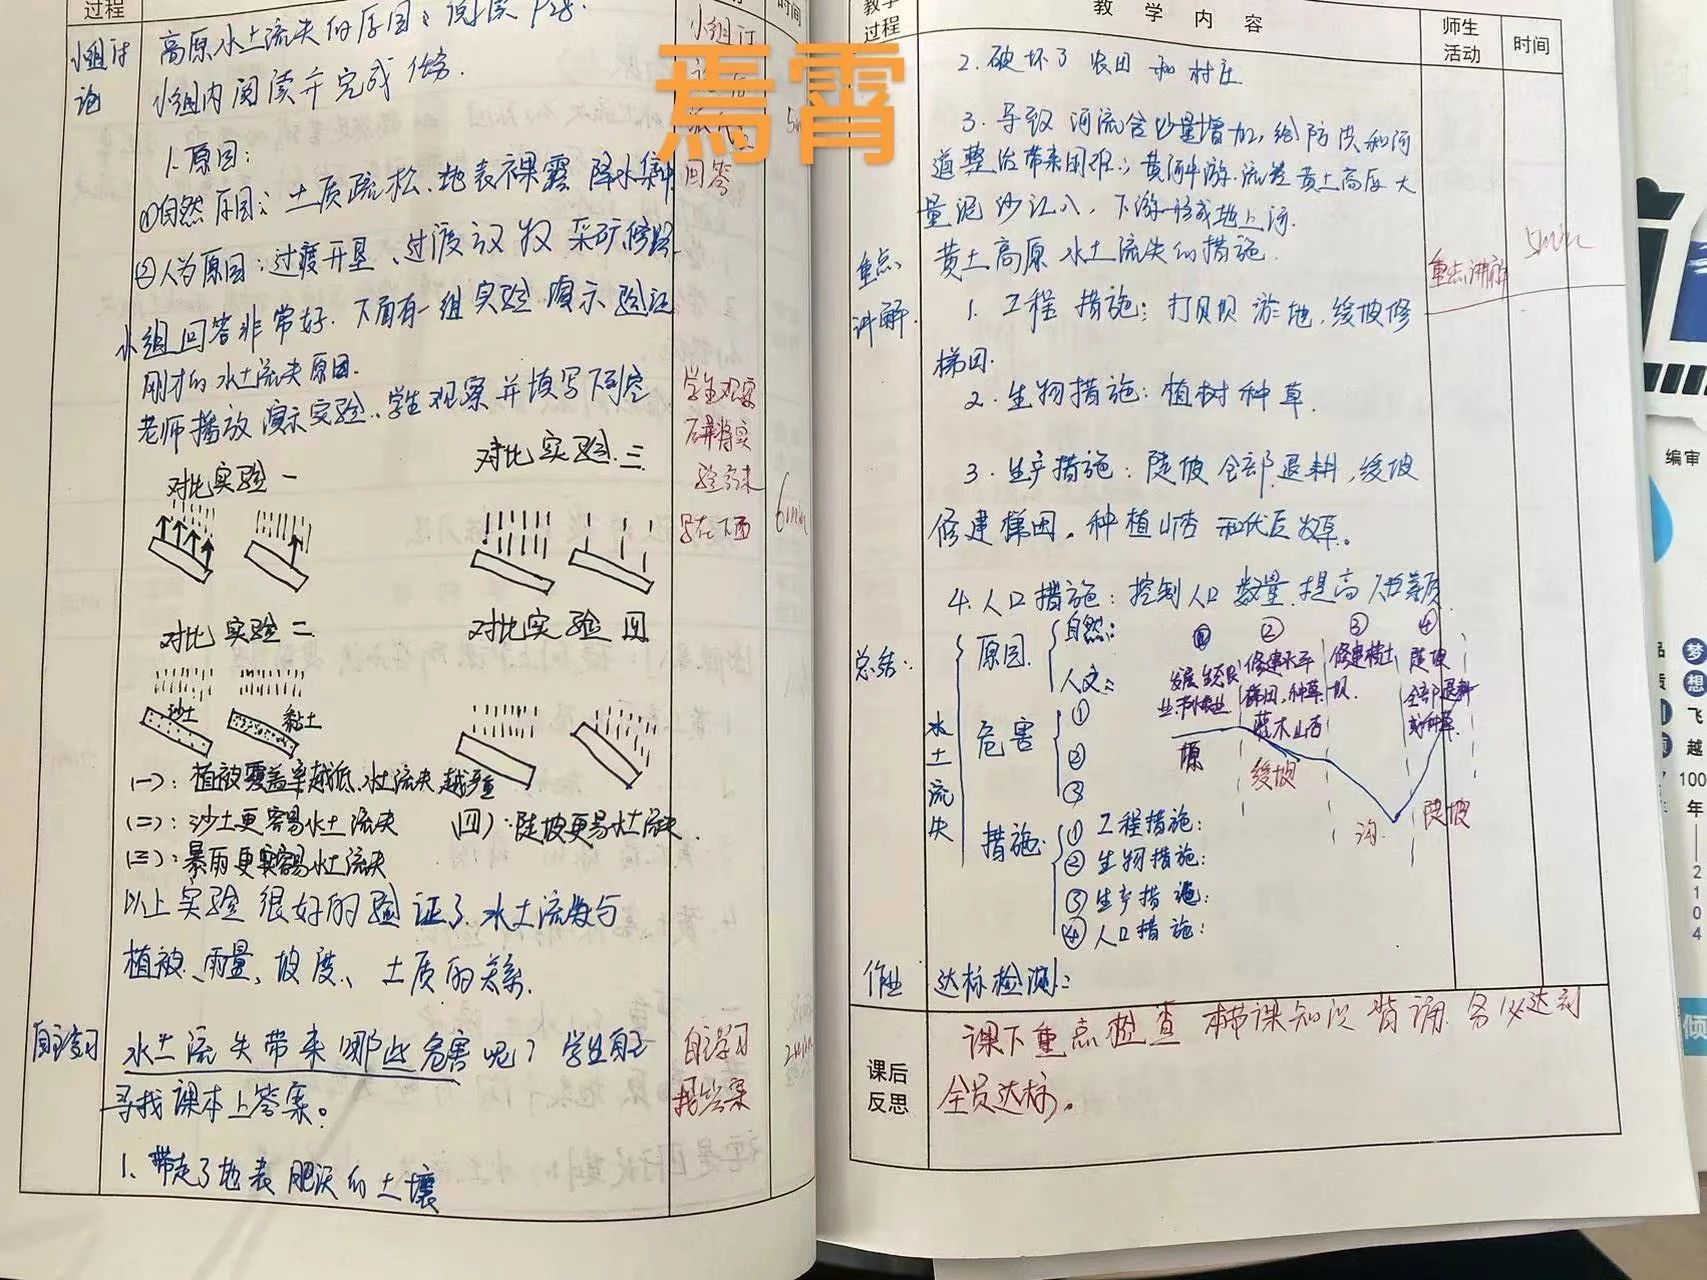 过程
时间
小组讨
论
高原水土流失的原因：阅读P28.
小组内阅读并完成任务.
小组讨
回答
焉霄
1.原因:
①自然原因：土质疏松、地表裸露 降水集中
②人为原因：过渡开垦、过渡放牧 采矿修路
小组回答非常好.下面有一组实验演示验证
刚才的水土流失原因.
老师播放演示实验，学生观察并填写下列空
学生观察
并将实
验结果
写在下面
6min
对比实验一
对比实验三
对比实验二
对比实验四
沙土
黏土
(一)：植被覆盖率越低.水土流失越严重
(二)：沙土更容易水土流失
(四)：陡坡更易水土流失.
(三)：暴雨更容易水土流失
以上实验很好的验证了水土流失与
植被、雨量、坡度、土质的关系.
自主学习
水土流失带来哪些危害呢？学生自主
寻找课本上答案。
自主学习
找答案
2min
1.带走了地表肥沃的土壤
教学
过程
教学内容
师生
活动
时间
2.破坏了农田和村庄
3.导致河流含沙量增加，给防洪和河
道整治带来困难；黄河中游流经黄土高原大
量泥沙汇入，下游形成地上河.
重点
讲解.
黄土高原水土流失的措施.
重点讲解
5min
1.工程措施：打坝淤地，缓坡修
梯田.
2.生物措施：植树种草.
3.生产措施：陡坡全部退耕，缓坡
修建梯田，种植山杏和优良牧草。
4.人口措施：控制人口数量.提高人口素质
总结：
水土流失
原因
自然：
人文：
危害
①
②
③
措施
①工程措施：
②生物措施：
③生产措施：
④人口措施：
① ② ③ ④
修建水平
梯田，种草
灌木山杏
修建挡土
坝
陡坡
全部退耕
或种草
塬
缓坡
沟
陡坡
作业
达标检测：
课后
反思
课下重点检查本节课知识背诵务必达到
全员达标。
编审
梦想飞越100年——2104
倾